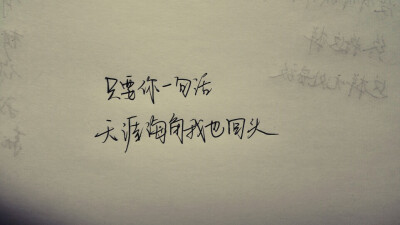 只要你一句话
天涯海角我也回头